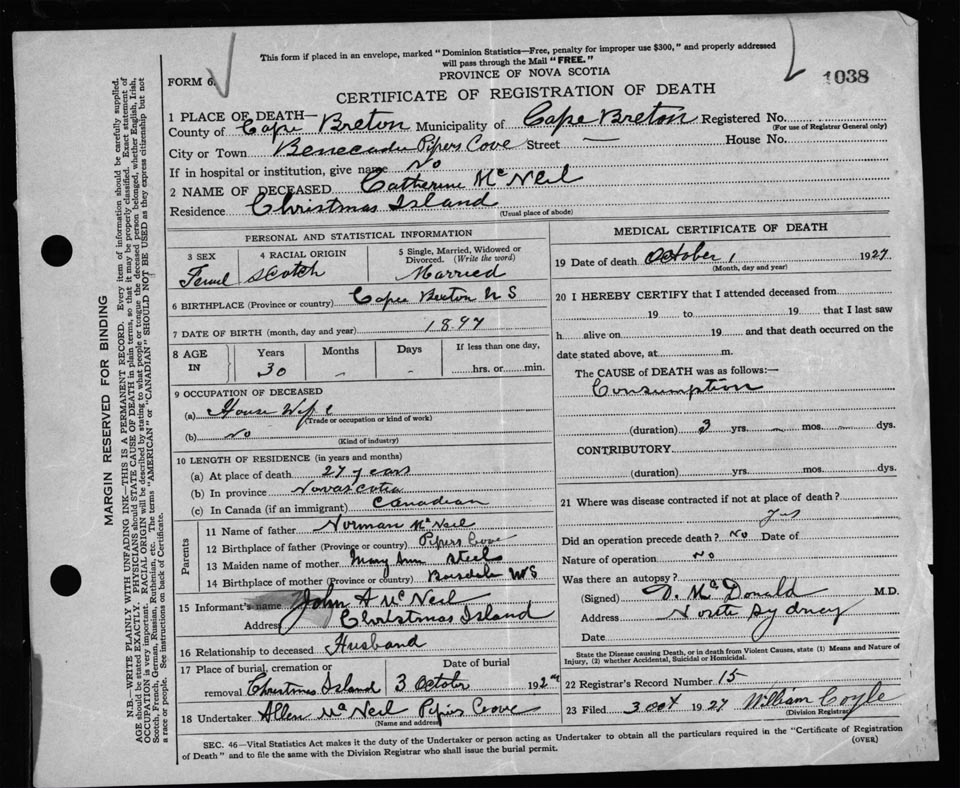 This form if placed in an envelope, marked "Dominion Statistics—Free, penalty for improper use $300," and properly addressed
will pass through the Mail "FREE."
FORM 6.
PROVINCE OF NOVA SCOTIA
1038
CERTIFICATE OF REGISTRATION OF DEATH
1 PLACE OF DEATH—
County of Cape Breton Municipality of Cape Breton Registered No.
(For use of Registrar General only)
City or Town Benecadie Pipers Cove Street — House No.
If in hospital or institution, give name No
2 NAME OF DECEASED Catherine McNeil
Residence Christmas Island
(Usual place of abode)
PERSONAL AND STATISTICAL INFORMATION
3 SEX 4 RACIAL ORIGIN 5 Single, Married, Widowed or Divorced. (Write the word)
Femal Scotch Married
6 BIRTHPLACE (Province or country) Cape Breton N S
7 DATE OF BIRTH (month, day and year) 1897
8 AGE IN Years Months Days If less than one day,
30 - - hrs. or min.
9 OCCUPATION OF DECEASED
(a) House Wife
(Trade or occupation or kind of work)
(b) No
(Kind of industry)
10 LENGTH OF RESIDENCE (in years and months)
(a) At place of death 27 years
(b) In province Nova Scotia
(c) In Canada (if an immigrant) Canadian
Parents
11 Name of father Norman McNeil
12 Birthplace of father (Province or country) Pipers Cove
13 Maiden name of mother Mary Ann Steel
14 Birthplace of mother (Province or country) Boisdale NS
15 Informant's name John A McNeil
Address Christmas Island
16 Relationship to deceased Husband
17 Place of burial, cremation or removal Christmas Island
Date of burial
3 Octobr 192
18 Undertaker Allen McNeil Pipers Cove
(Name and address)
MEDICAL CERTIFICATE OF DEATH
19 Date of death October 1 1927
(Month, day and year)
20 I HEREBY CERTIFY that I attended deceased from
19 to 19 that I last saw
h alive on 19 and that death occurred on the
date stated above, at m.
The CAUSE of DEATH was as follows:—
Consumption
(duration) 3 yrs. - mos. - dys.
CONTRIBUTORY
(duration) yrs. mos. dys.
21 Where was disease contracted if not at place of death?
Yes
Did an operation precede death? No Date of
Nature of operation No
Was there an autopsy?
(Signed) D. McDonald M.D.
Address North Sydney
Date
State the Disease causing Death, or in death from Violent Causes, state (1) Means and Nature of
Injury, (2) whether Accidental, Suicidal or Homicidal.
22 Registrar's Record Number 15
23 Filed 3 Oct 1927 William Coyle
(Division Registrar)
SEC. 46—Vital Statistics Act makes it the duty of the Undertaker or person acting as Undertaker to obtain all the particulars required in the "Certificate of Registration
of Death" and to file the same with the Division Registrar who shall issue the burial permit.
(OVER)
MARGIN RESERVED FOR BINDING
N.B.—WRITE PLAINLY WITH UNFADING INK—THIS IS A PERMANENT RECORD. Every item of information should be carefully supplied.
AGE should be stated EXACTLY. PHYSICIANS should STATE CAUSE OF DEATH in plain terms, so that it may be properly classified. Exact statement of
OCCUPATION is very important. RACIAL ORIGIN will be described by stating to what people or tongue the deceased person belonged, whether English, Irish,
Scotch, French, German, Russian, Ruthenian, etc. The terms "AMERICAN" or "CANADIAN" SHOULD NOT BE USED as they express citizenship but not
a race or people. See instructions on back of Certificate.